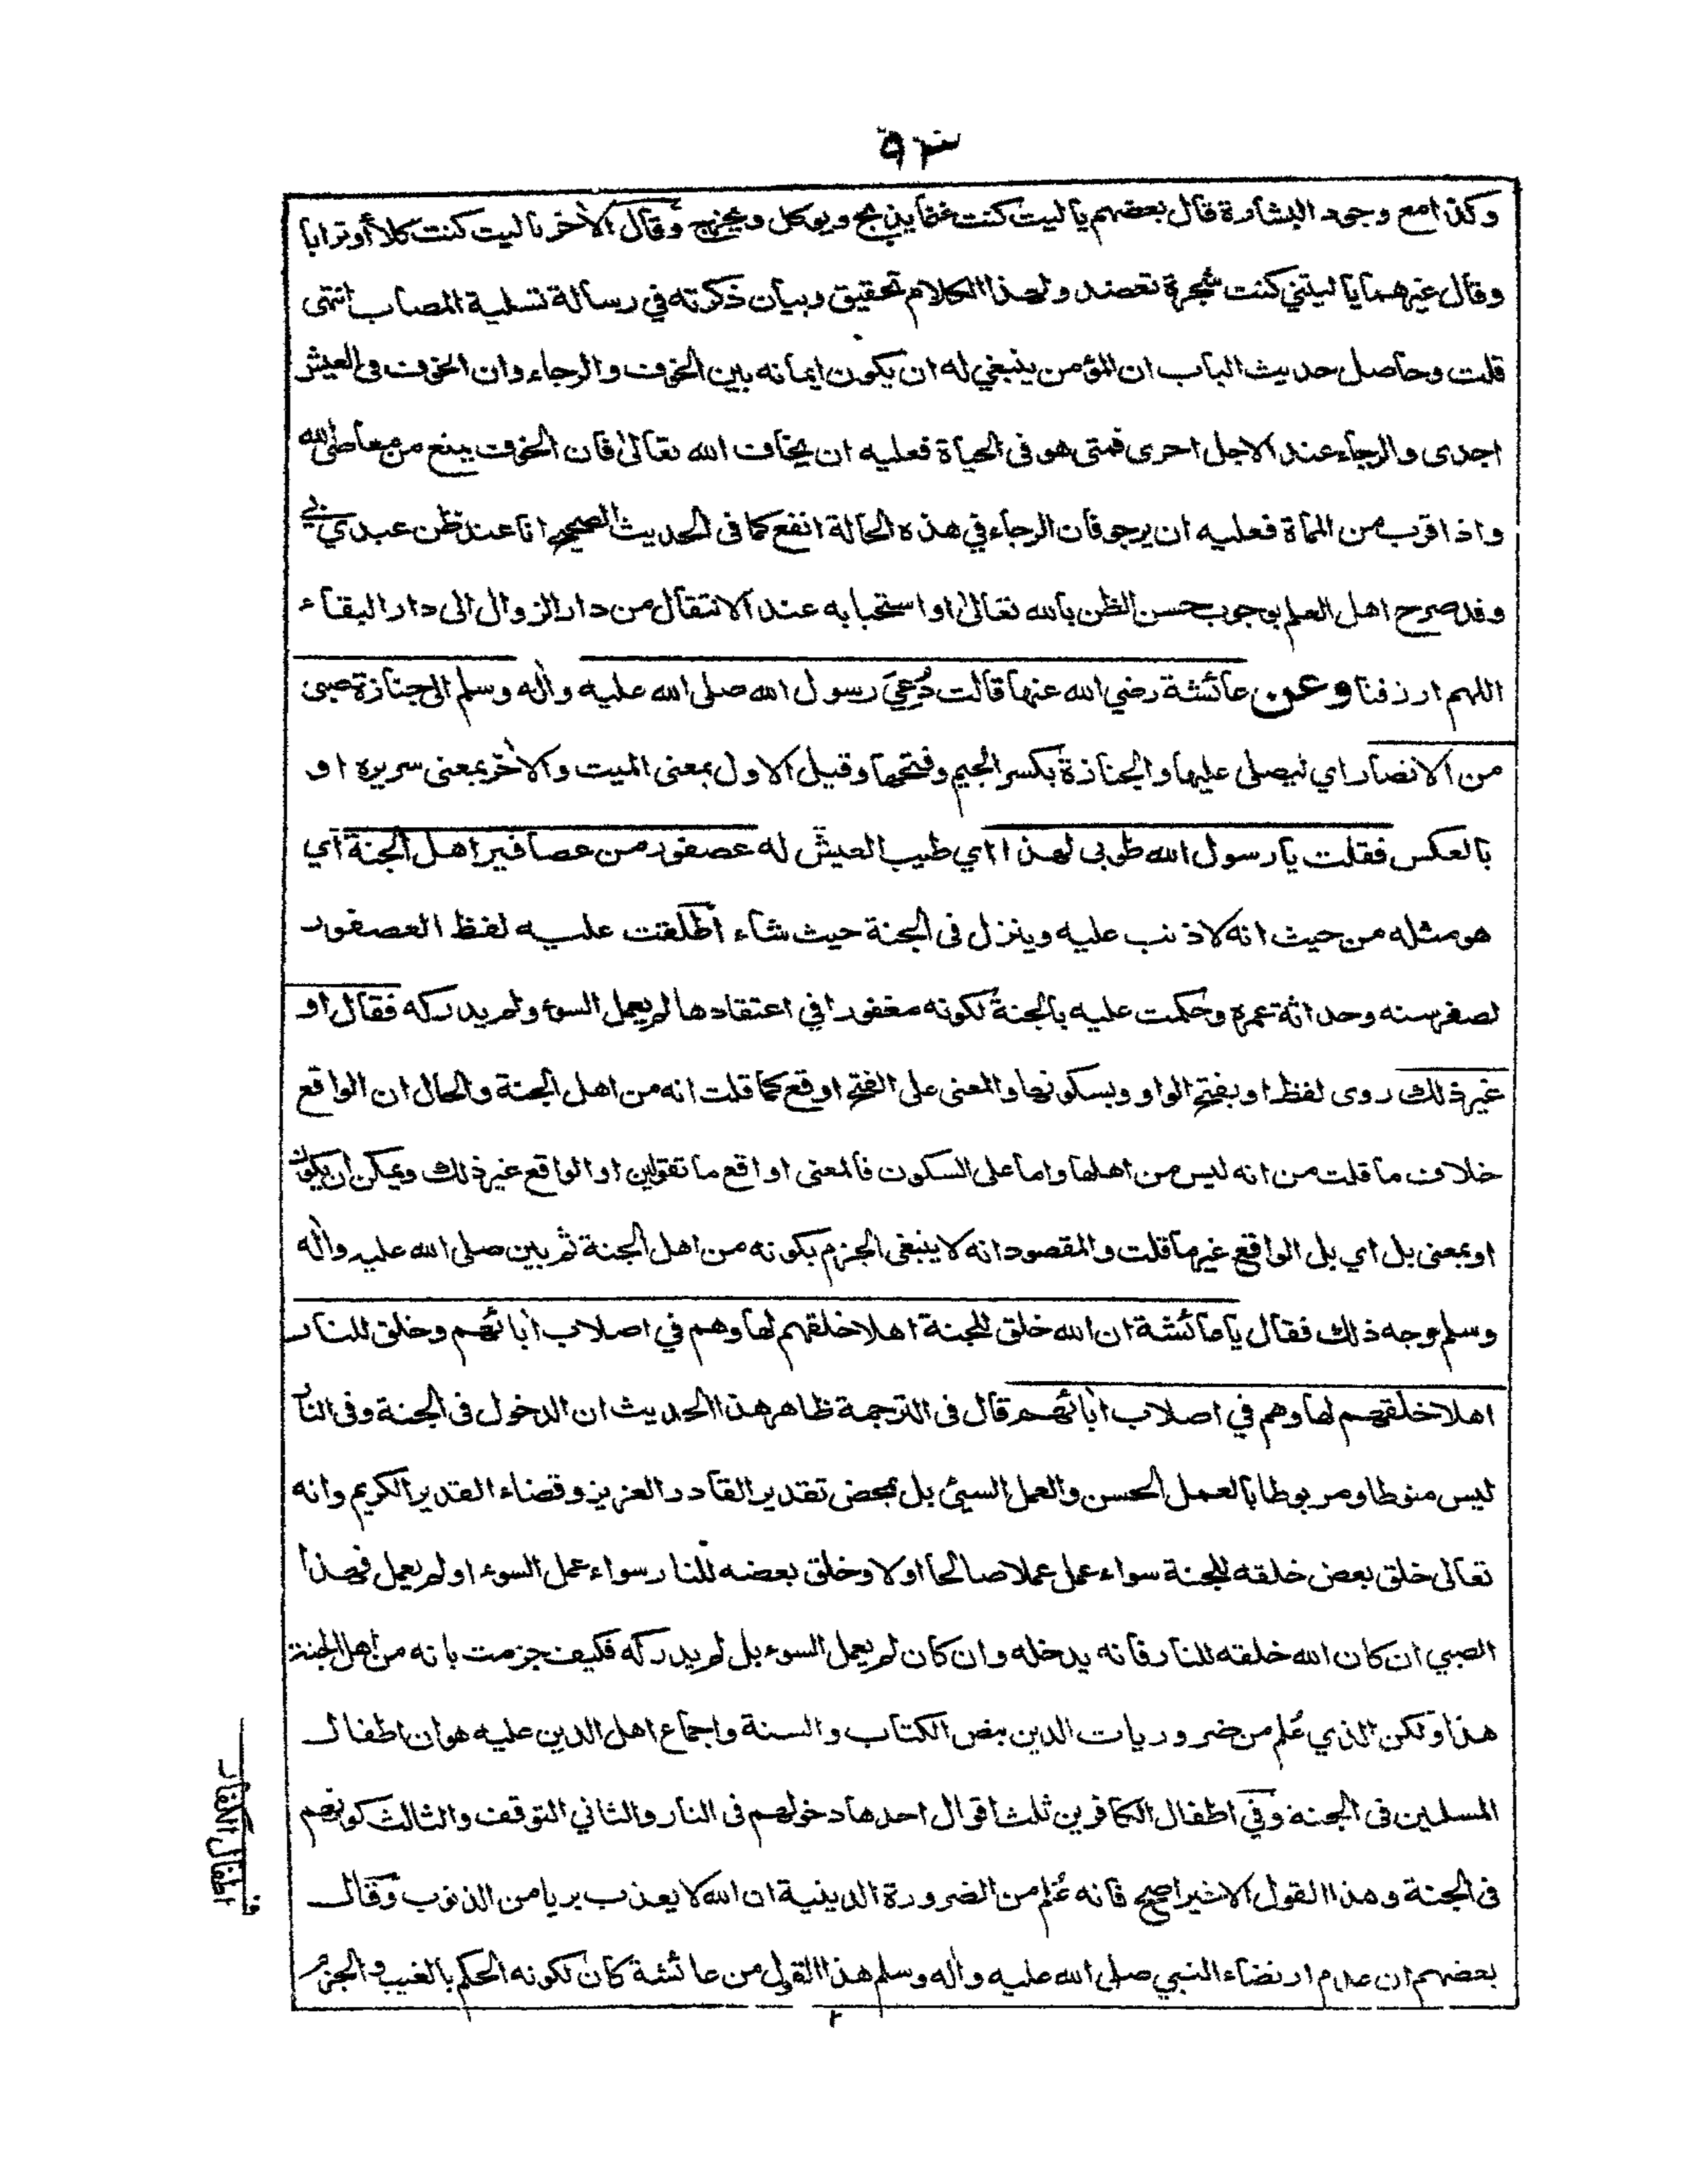 ٩٣
وكذا مع وجود البشارة قال بعضهم يا ليت كنت غنما يذبح ويوكل ويخرج وقال الآخر يا ليت كنت كلأ أو ترابا
وقال غيرهما يا ليتني كنت شجرة تعضد ولهذا الكلام تحقيق وبيان ذكرته في رسالة تسلية المصاب انتهى
قلت وحاصل حديث الباب ان المؤمن ينبغي له ان يكون ايمانه بين الخوف والرجاء وان الخوف فى العيش
اجدى والرجاء عند الاجل احرى فمتى هو فى الحياة فعليه ان يخاف الله تعالىٰ فان الخوف يمنع من معاطى الله
واذا قرب من المماة فعليه ان يرجو فان الرجاء في هذه الحالة انفع كما فى الحديث الصحيح انا عند ظن عبدي بي
وقد صرح اهل العلم بوجوب حسن الظن بالله تعالىٰ او استحبابه عند الانتقال من دار الزوال الى دار البقاء
اللهم ارزقنا وعن عائشة رضي الله عنها قالت دُعِيَ رسول الله صلى الله عليه واٰله وسلم الى جنازة صبى
من الانصار اي ليصلى عليها والجنازة بكسر الجيم وفتحها وقيل الاول بمعنى الميت والاٰخر بمعنى سريره او
بالعكس فقلت يا رسول الله طوبى لهذا اي طيب العيش له عصفور من عصافير اهل الجنة اي
هو مثله من حيث انه لا ذنب عليه وينزل فى الجنة حيث شاء اطلقت عليه لفظ العصفور
لصغر سنه وحداثة عمره وحكمت عليه بالجنة لكونه مغفورا في اعتقادها لم يعمل السوء ولم يدركه فقال او
غير ذلك روى لفظ او بفتح الواو وبسكونها والمعنى على الفتح اوقع كما قلت انه من اهل الجنة والحال ان الواقع
خلاف ما قلت من انه ليس من اهلها واما على السكون فالمعنى اواقع ما تقولين او الواقع غير ذلك ويمكن ان يكون
او بمعنى بل اي بل الواقع غير ما قلت والمقصود انه لا ينبغى الجزم بكونه من اهل الجنة ثم بين صلى الله عليه واٰله
وسلم وجه ذلك فقال يا عائشة ان الله خلق للجنة اهلا خلقهم لها وهم في اصلاب اٰبائهم وخلق للنار
اهلا خلقهم لها وهم في اصلاب اٰبائهم قال فى الترجمة ظاهر هذا الحديث ان الدخول فى الجنة وفى النار
ليس منوطا ومربوطا بالعمل الحسن والعمل السيئ بل بمحض تقدير القادر العزيز وقضاء القدير الكريم وانه
تعالى خلق بعض خلقه للجنة سواء عمل عملا صالحا اولا وخلق بعضه للنار سواء عمل السوء او لم يعمل فهذا
الصبي ان كان الله خلقه للنار فانه يدخله وان كان لم يعمل السوء بل لم يدركه فكيف جزمت بانه من اهل الجنة
هذا ولكن الذي عُلم من ضروريات الدين بنص الكتاب والسنة واجماع اهل الدين عليه هو ان اطفال
المسلمين فى الجنة وفي اطفال الكافرين ثلث اقوال احدها دخولهم فى النار والثاني التوقف والثالث كونهم
فى الجنة وهذا القول الاخير اصح فانه عُلم من الضرورة الدينية ان الله لا يعذب بريا من الذنوب وقال
بعضهم ان عدم ارتضاء النبي صلى الله عليه واٰله وسلم هذا القول من عائشة كان لكونه الحكم بالغيب والجزم
ف اطفال الكفار
٢